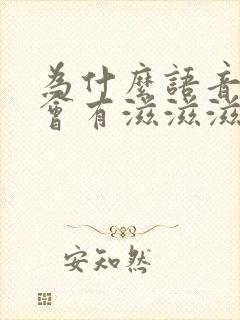 為什麼語音
會有滋滋滋
安知然